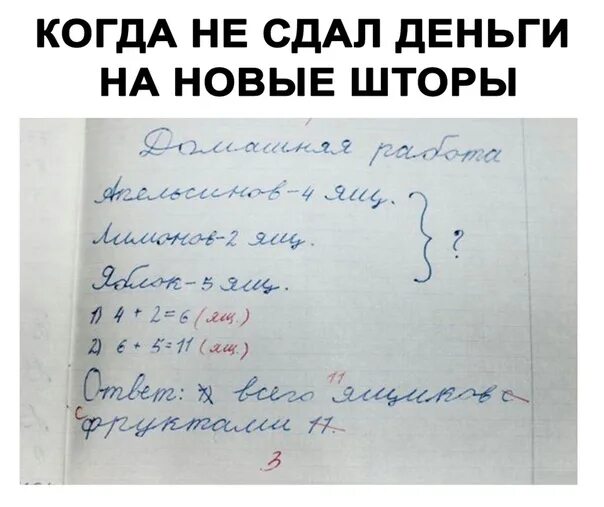 КОГДА НЕ СДАЛ ДЕНЬГИ
НА НОВЫЕ ШТОРЫ
Домашняя работа
Апельсинов-4 ящ.
Лимонов-2 ящ. } ?
Яблок-5 ящ.
1) 4 + 2=6 (ящ.)
2) 6 + 5=11 (ящ.)
11
Ответ: всего ящиков с
с фруктами 11.
3